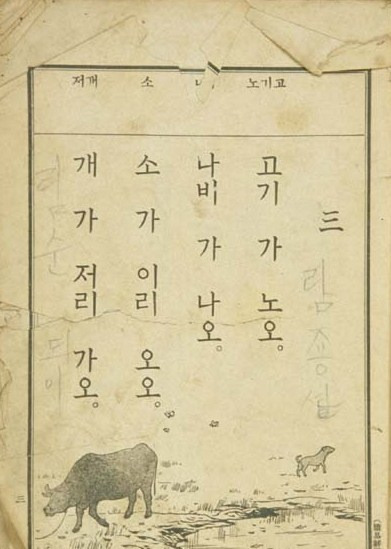 고기노
소
개저
三
고기 가 노오。
나비 가 나오。
소 가 이리 오오。
개 가 저리 가오。
三